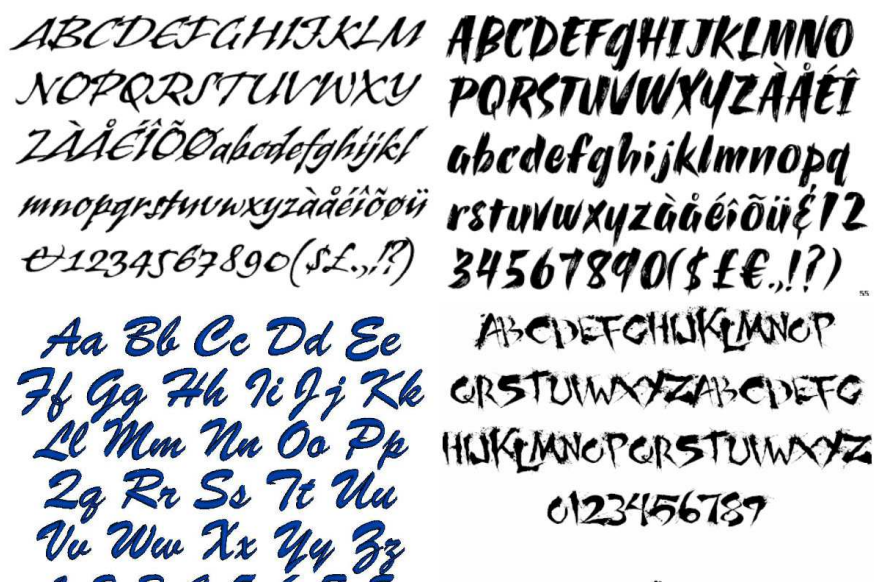 ABCDEFGHIJKLM
NOPQRSTUVWXY
ZÀÅÉÎÕØabcdefghijkl
mnopqrstuvwxyzàåéîõøü
&1234567890($£.,!?)
ABCDEFGHIJKLMNO
PQRSTUVWXYZÀÅÉÎ
abcdefghijklmnopq
rstuvwxyzàåéîõü&12
34567890($£€.,!?)
55
Aa Bb Cc Dd Ee
Ff Gg Hh Ii Jj Kk
Ll Mm Nn Oo Pp
Qq Rr Ss Tt Uu
Vv Ww Xx Yy Zz
ABCDEFGHIJKLMNOP
QRSTUVWXYZABCDEFG
HIJKLMNOPQRSTUVWXYZ
0123456789